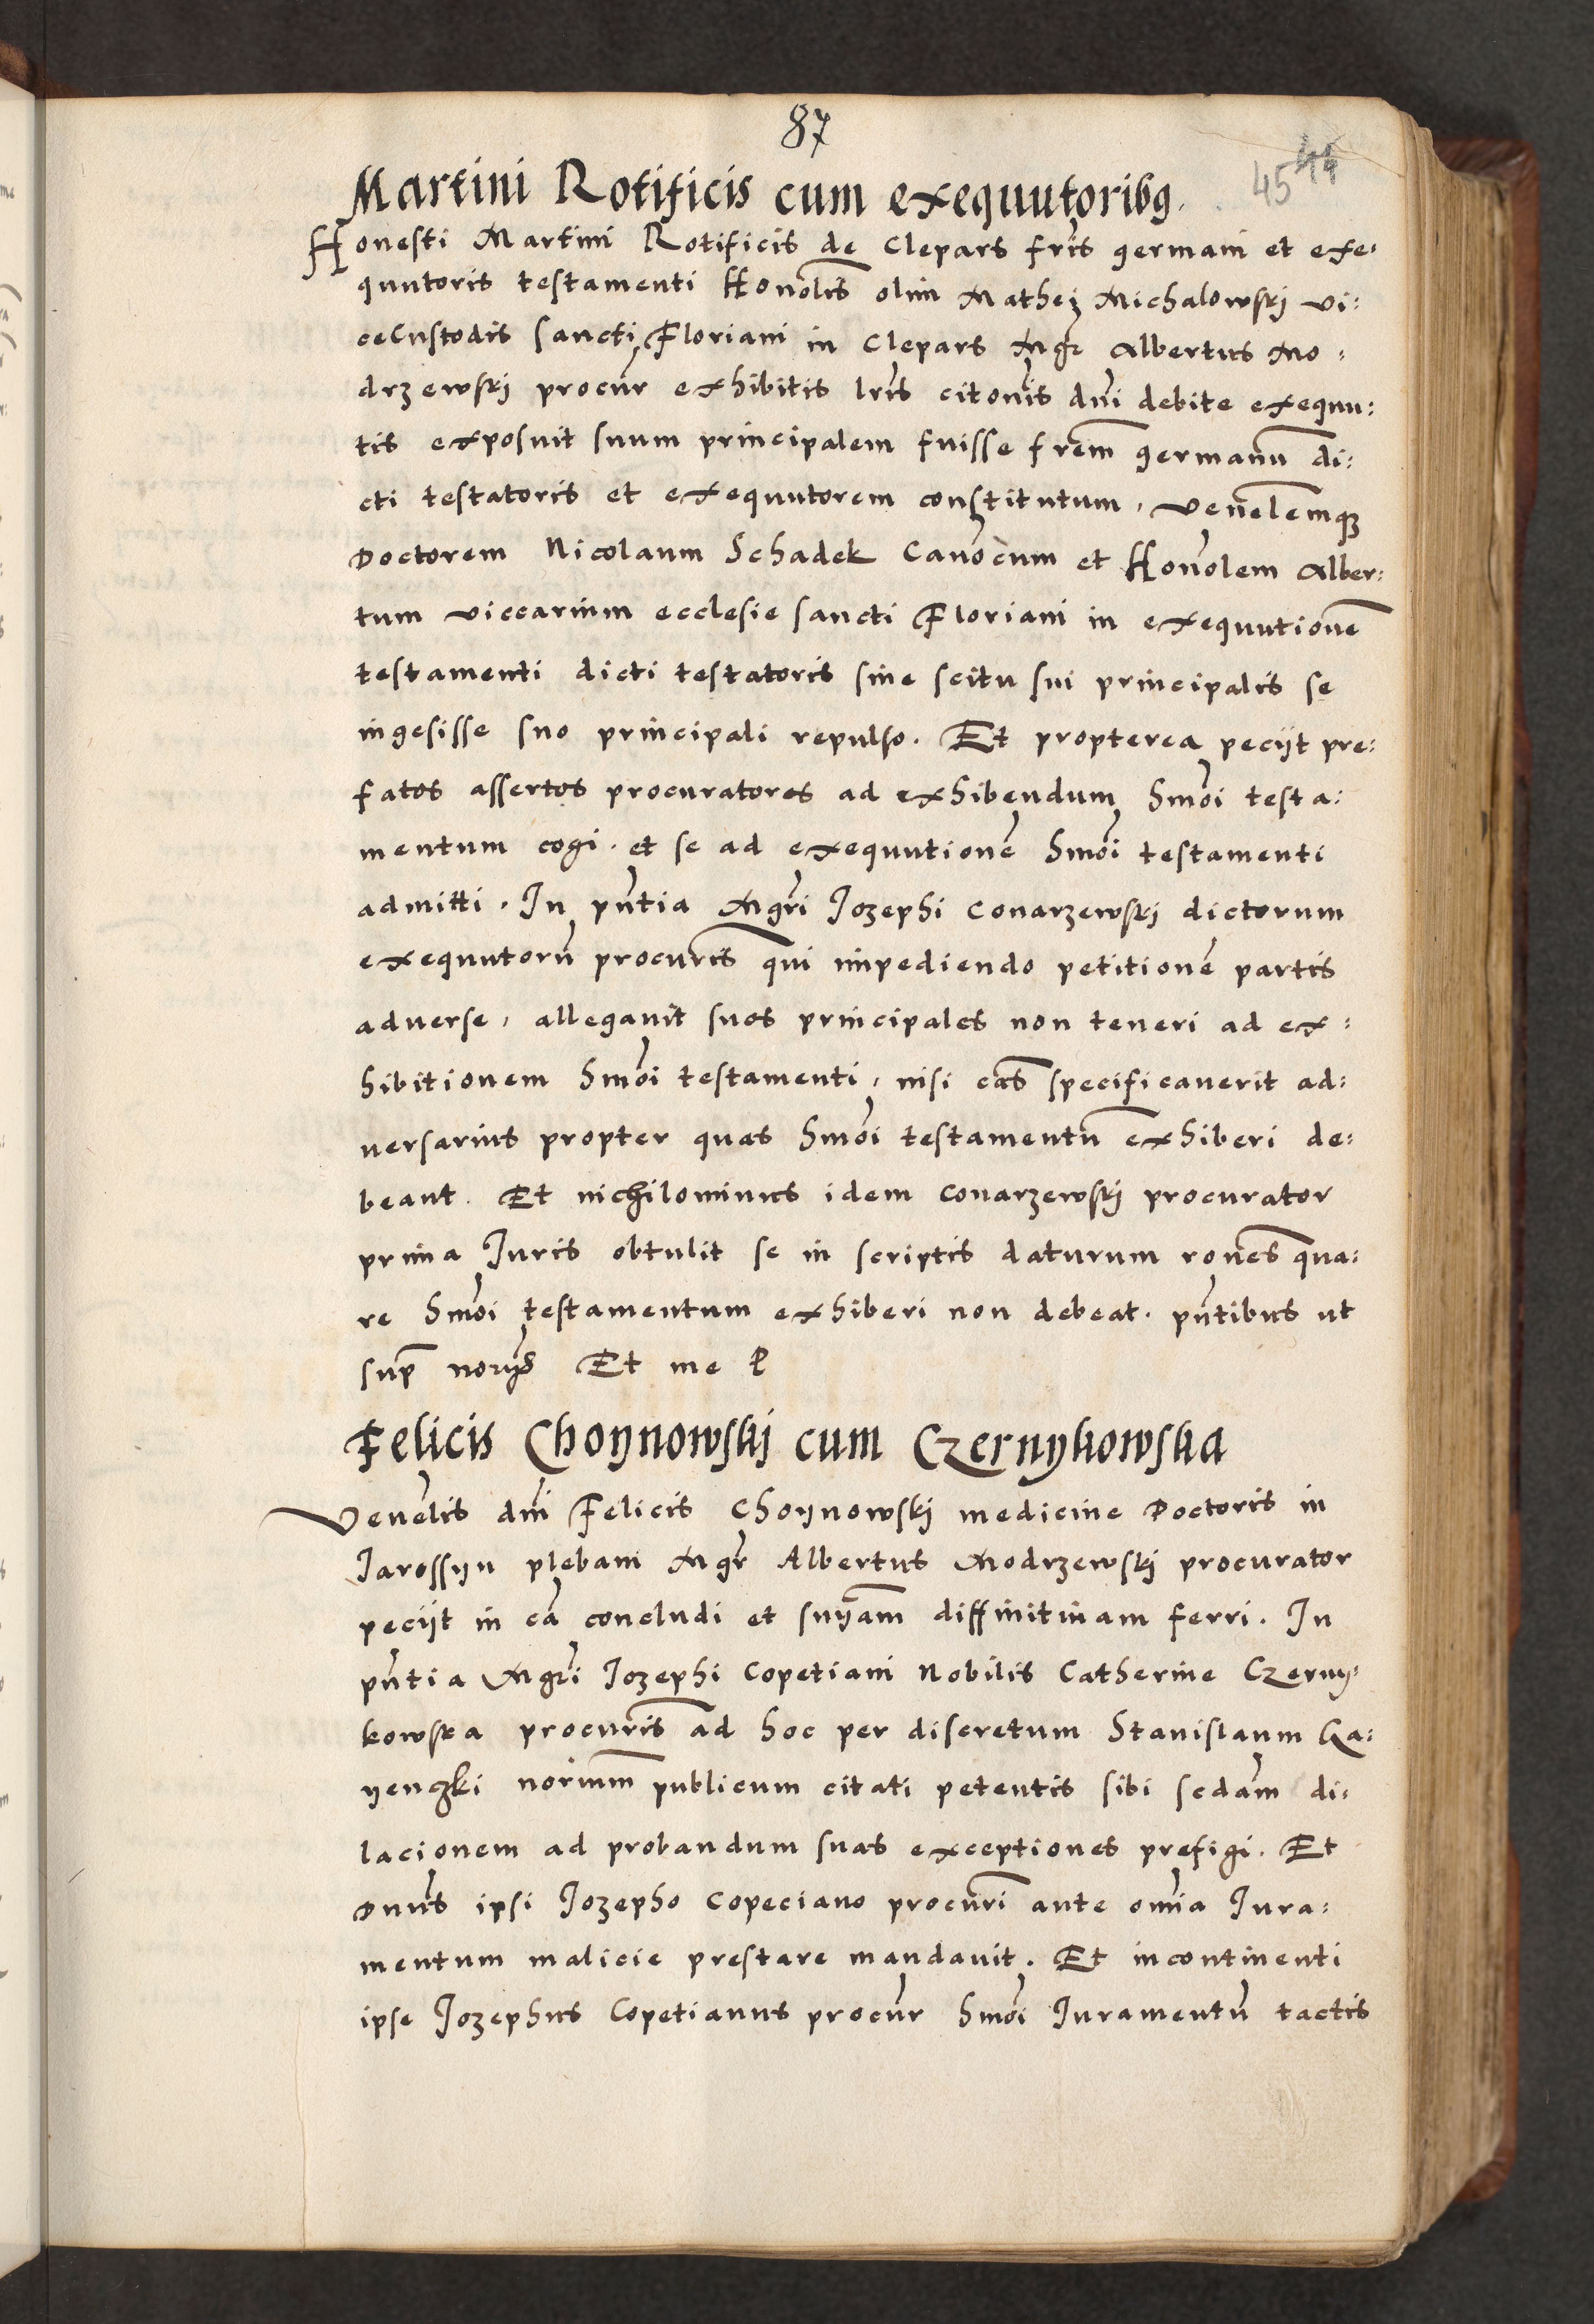 87
45 44
Martini Rotificis cum exequutoribꝯ.
Honesti Martini Rotificis de Clepars fr̄is germani et exe:
quutoris testamenti Honol̄is olim Mathei Michalowskj vi:
cecustodis sancti Floriani in Clepars Mgr̄ Albertus Mo:
drzewskj procūr exhibitis lr̄is citōnis dn̄i debite exequu:
tis exposuit suum principalem fuisse frēm germanū di:
cti testatoris et exequutorem constitutum, venelēmqꝫ
Doctorem Nicolaum Schadek Canōcum et Honōlem Alber:
tum viccarium ecclesie sancti Floriani in exequutionē
testamenti dicti testatoris sine scitu sui principalis se
ingesisse suo principali repulso. Et propterea pecijt pre:
fatos assertos procuratores ad exhibendum hmōi testa:
mentum cogi. et se ad exequutionē hmōi testamenti
admitti. In pn̄tia Mgr̄i Jozephi Conarzewskj dictorum
exequutorū procurīs qui impediendo petitionē partis
adverse, allegavit suos principales non teneri ad ex:
hibitionem hmōi testamenti, nisi cās specificaverit ad:
versarius propter quas hmōi testamentū exhiberi de:
beant. Et nichilominus idem Conarzewskj procurator
prima Juris obtulit se in scriptis daturum rōnes qua:
re hmōi testamentum exhiberi non debeat. pn̄tibus ut
sup̄ Et me
Felicis Choynowskj cum Czernykowska
Venel̄is dn̄i Felicis Choynowskj medicine Doctoris in
Jarossyn plebani Mgr̄ Albertus Modrzewskj procurator
pecijt in cā concludi et snīam diffinitivam ferri. In
pn̄tia Mgr̄i Jozephi Copetiani Nobilis Catherine Czerny:
kowska procurīs ad hoc per discretum Stanislaum Ga:
yenczki noriūm publicum citati petentis sibi sedām di:
lacionem ad probandum suas exceptiones prefigi. Et
Dnūs ipsi Jozepho Copeciano procurī ante omīa Jura:
mentum malicie prestare mandavit. Et incontinenti
ipse Jozephus Copetianus procūr hmōi Juramentū tactis